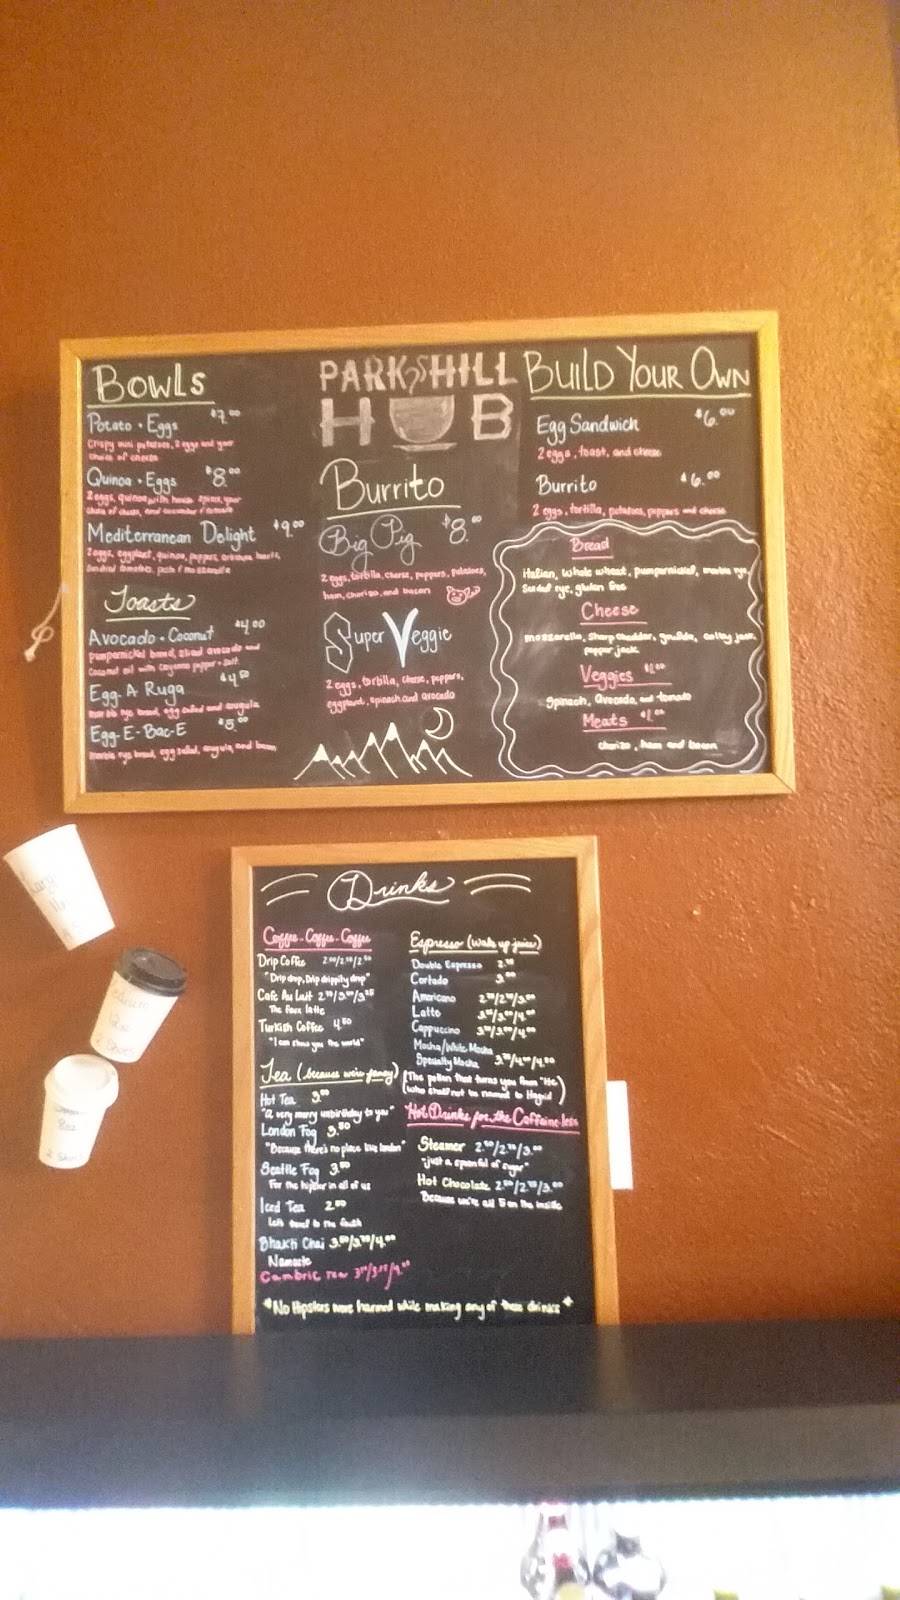 BOWLS
Potato + Eggs $7.00
Crispy mini potatoes, 2 eggs and your
choice of cheese
Quinoa + Eggs $8.00
2 eggs, quinoa with house spices, your
Mediterranean Delight $9.00
2 eggs, eggplant, quinoa, peppers,
Toasts
Avocado + Coconut $4.00
pumpernickel bread, sliced avocado and
Coconut oil with cayenne pepper + salt
Egg-A Ruga $4.50
marble rye bread, egg salad and arugula
Egg-E-Bac-E $5.00
marble rye bread, egg salad, arugula, and bacon
PARK HILL
HUB
Burrito
Big Pig $8.00
2 eggs, tortilla, cheese, peppers, potatoes,
ham, chorizo, and bacon
Super Veggie
2 eggs, tortilla, cheese, peppers,
eggplant, spinach and avocado
BUILD YOUR OWN
Egg Sandwich $6.00
2 eggs, toast, and cheese
Burrito $6.00
2 eggs, tortilla, potatoes, peppers and cheese
Bread
Italian, whole wheat, pumpernickel, marble rye,
rye, gluten free
Cheese
mozzarella, sharp cheddar, gouda, colby jack,
pepper jack
Veggies $1.00
Spinach, avocado, and tomato
Meats $1.00
chorizo, ham and bacon
Drinks
Coffee-Coffee-Coffee
Drip Coffee
"Drip drop, Drip drippity drop"
Cafe Au Lait
The faux latte
Turkish Coffee 4.50
"I can show you the world"
Tea (because we're fancy)
Hot Tea 3.00
"A very merry unbirthday to you"
London Fog 3.50
"Because there's no place like london"
Seattle Fog 3.50
For the hipster in all of us
Iced Tea 2.50
Let's travel to the South
Bhakti Chai
Namaste
Cambric Tea
Espresso (wake up juice)
Double Espresso
Cortado 3.00
Americano
Latte
Cappuccino
Mocha/White Mocha
Specialty Mocha
(The potion that turns you from "He
who shall not be named to Hagrid)
Hot Drinks for the Caffeine-less
Steamer
"just a spoonful of sugar"
Hot Chocolate
Because we're all 5 on the inside
*No Hipsters were harmed while making any of these drinks*